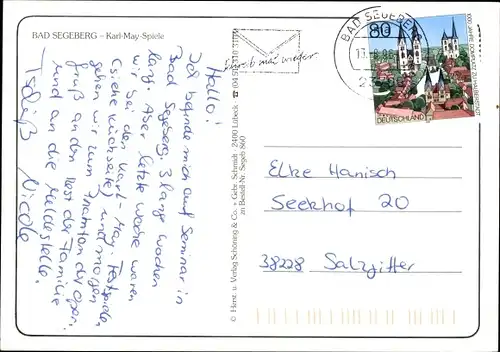 BAD SEGEBERG – Karl-May-Spiele
Hallo!
Ich befinde mich auf Seminar in
Bad Segeberg. 3 lange Wochen
lang. Aber letzte Woche waren
wir bei den Karl-May Festspielen
(siehe Rückseite) und morgen
gehen wir zum
Gruß an den Rest der Familie
und an die Meldestelle.
Tschüß Nicole
© Horst. u. Verlag Schöning & Co. + Gebr. Schmidt · 2400 Lübeck
zu Bestell-Nr. Segeb 860
Schreib mal wieder
BAD SEGEBERG
80
1000 JAHRE DOM
DEUTSCHLAND
Elke Hanisch
Seekhof 20
38228 Salzgitter